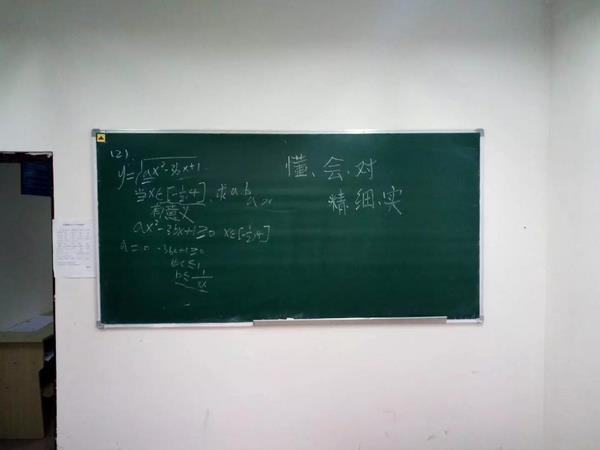 (2)
y=√ax²-3bx+1
当x∈[-1/2,4],求a.b
有意义
ax²-3bx+1≥0 x∈[-1/2,4]
a=0 -3bx+1≥0
b≤
懂、会、对
精、细、实